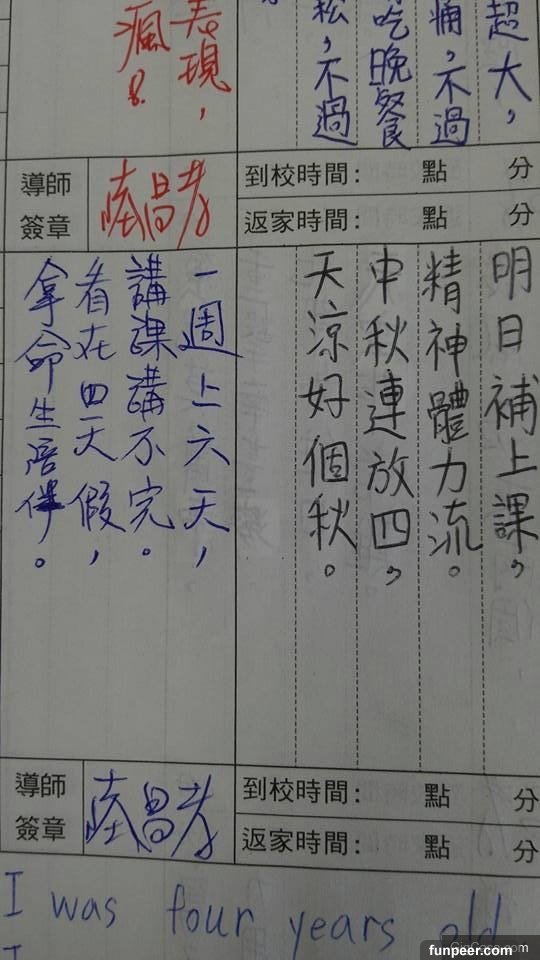 超大，
痛，不過
吃晚餐
松，不過
表現，
瘋
導師
簽章
到校時間： 點 分
返家時間： 點 分
明日補上課，
精神體力流。
中秋連放四，
天涼好個秋。
一週上六天，
講課講不完。
看在四天假，
拿命生陪伴。
導師
簽章
到校時間： 點 分
返家時間： 點 分
I was four years old
funpeer.com